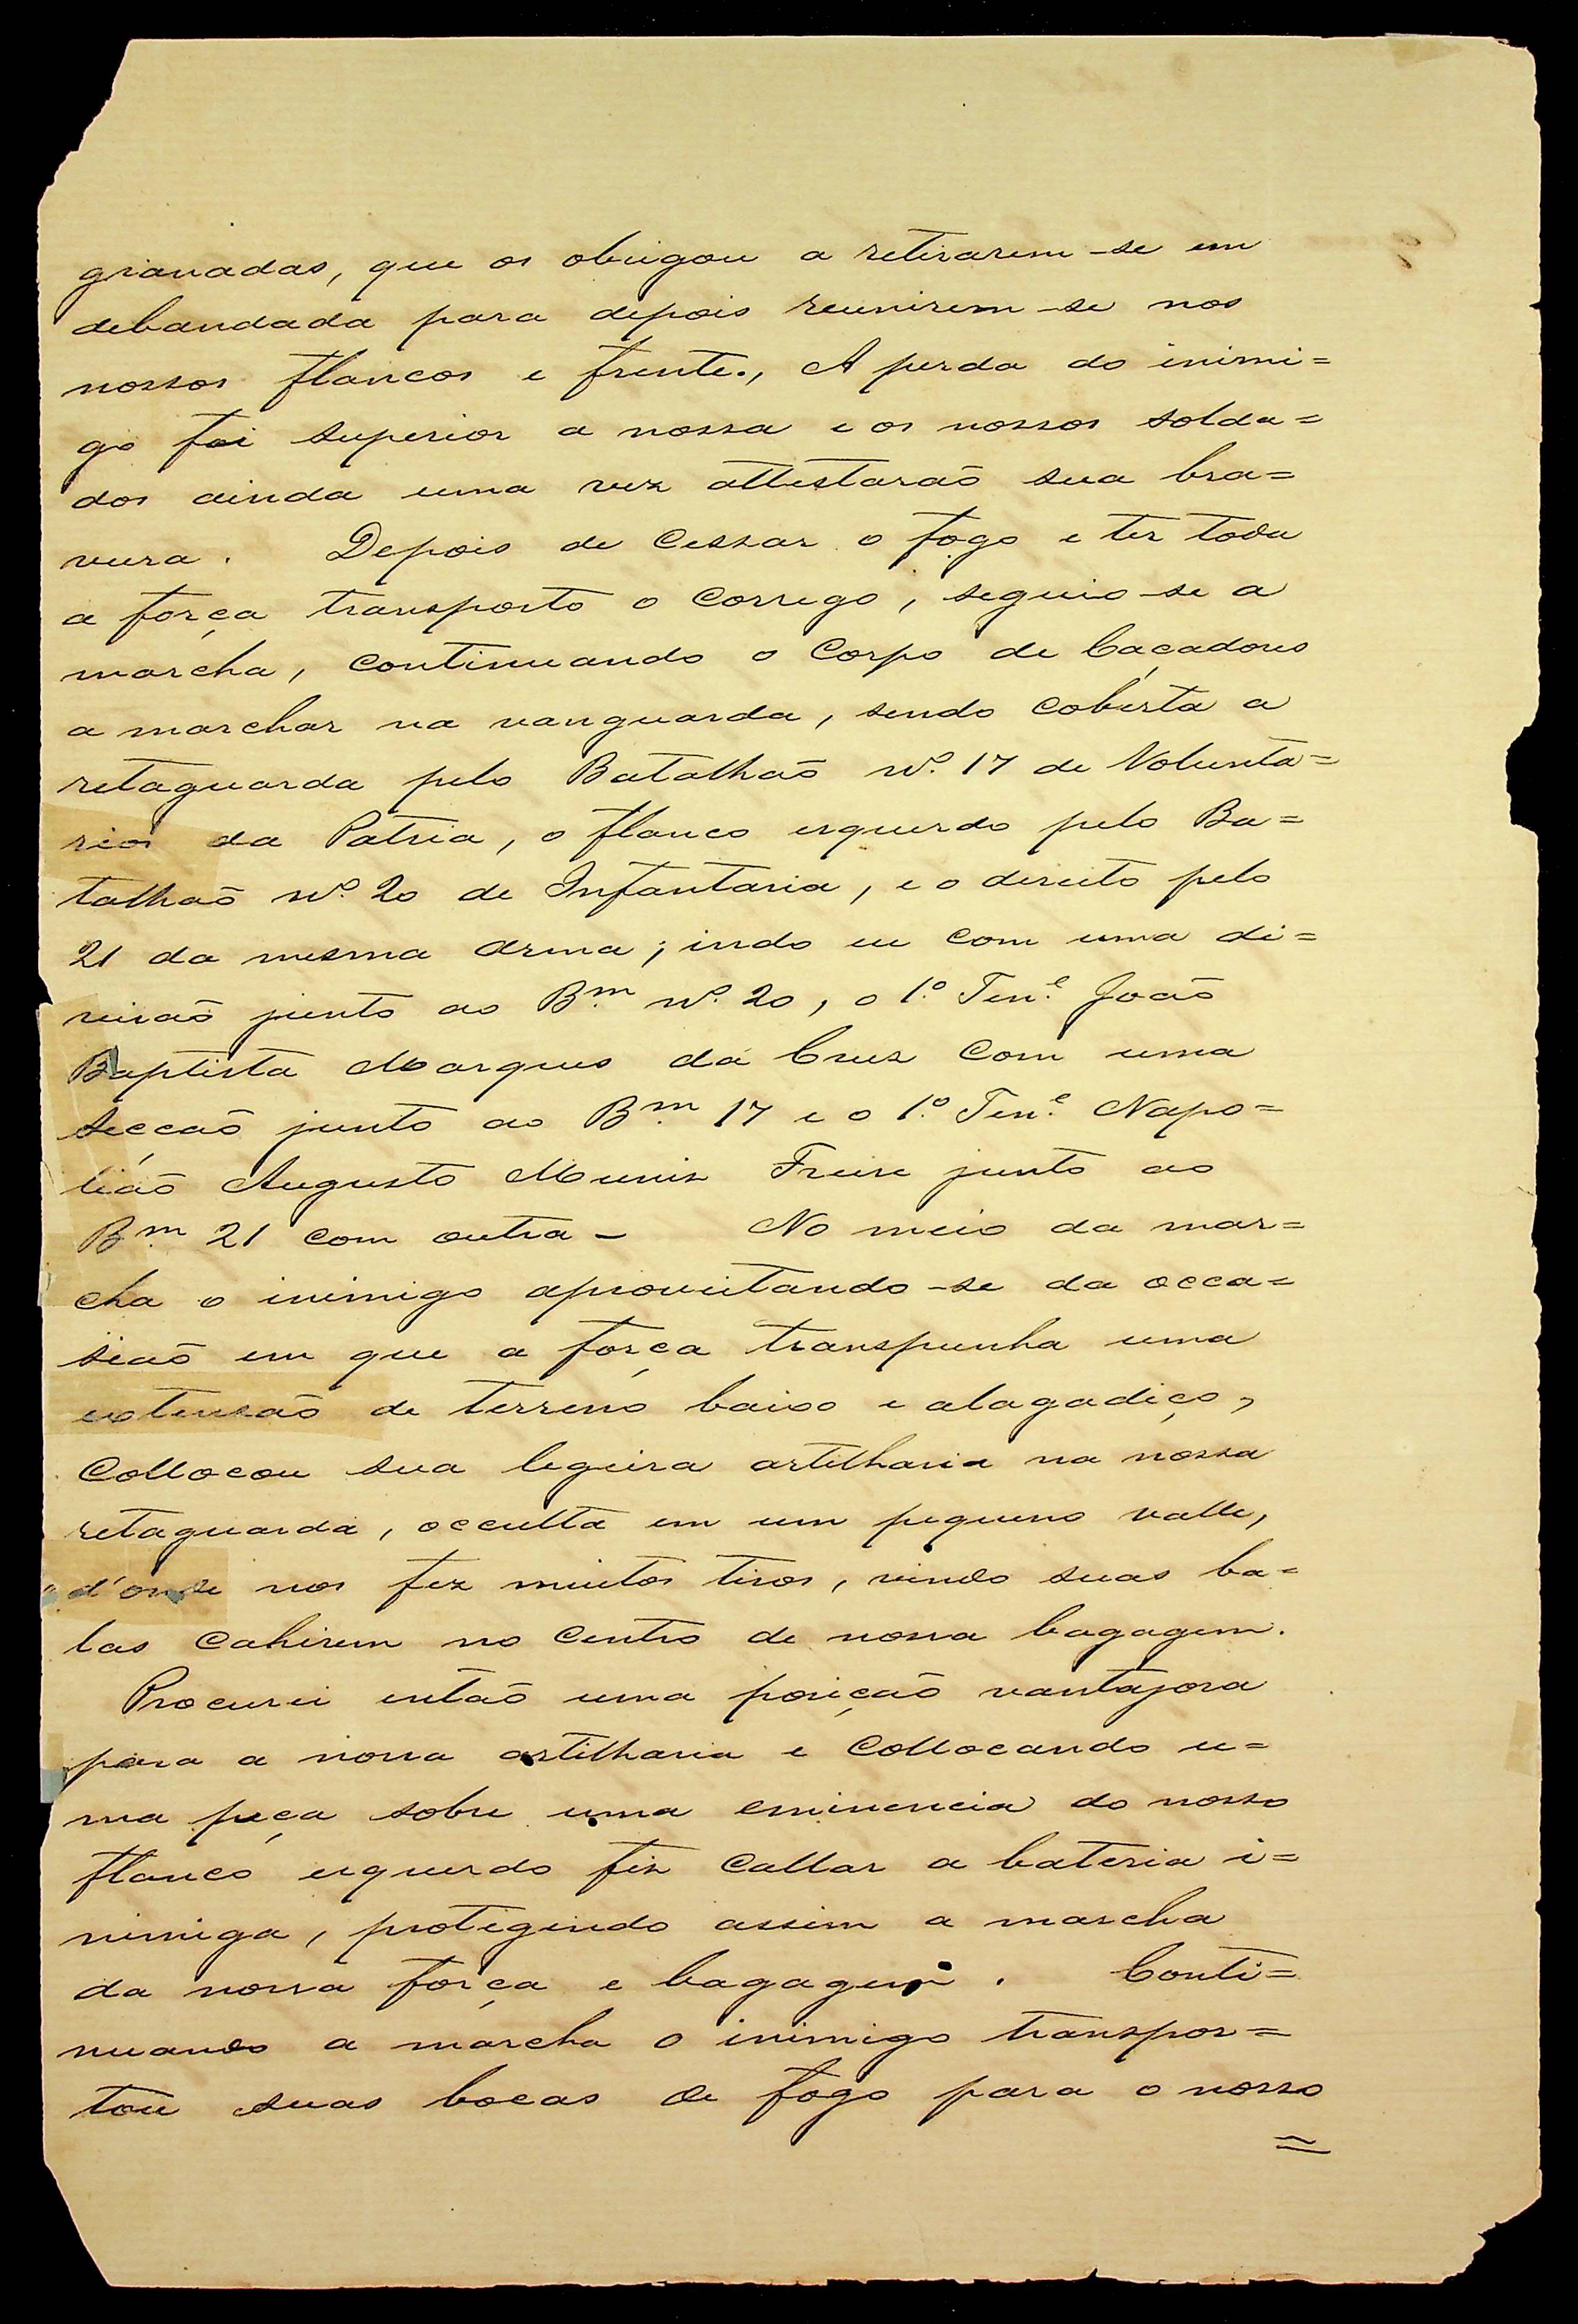 granadas, que os obrigou a retirarem-se em
debandada para depois reunirem-se nos
nossos flancos e frente., A perda do inimi=
go foi superior a nossa e os nossos solda=
dos ainda uma vez attestaraõ sua bra=
vura. Depois de cessar o fogo e ter toda
a força transposto o corrego, seguio-se a
marcha, continuando o Corpo de Caçadores
a marchar na vanguarda, sendo coberta a
retaguarda pelo Batalhaõ Nº. 17 de Volunta=
rios da Patria, o flanco esquerdo pelo Ba=
talhaõ Nº. 20 de Infantaria, e o direito pelo
21 da mesma arma; indo eu com uma di=
visaõ junto ao B.m Nº. 20, o 1.º Ten.e Joaõ
Baptista Marques da Cruz com uma
secçaõ junto ao B.m 17 e o 1.º Ten.e Napo=
liaõ Augusto Muniz Freire junto ao
B.m 21 com outra - No meio da mar=
cha o inimigo aproveitando-se da occa=
siaõ em que a força transpunha uma
extensaõ de terreno baixo e alagadiço,
collocou sua ligeira artilharia na nossa
retaguarda, occulta em um pequeno valle,
d'onde nos fez muitos tiros, vindo suas ba=
las cahirem no centro de nossa bagagem.
Procurei entaõ uma posiçaõ vantajosa
para a nossa artilharia e collocando u=
ma peça sobre uma eminencia do nosso
flanco esquerdo fiz callar a bateria i=
nimiga, protegindo assim a marcha
da nossa força e bagagem. Conti=
nuando a marcha o inimigo transpor=
tou suas bocas de fogo para o nosso
=